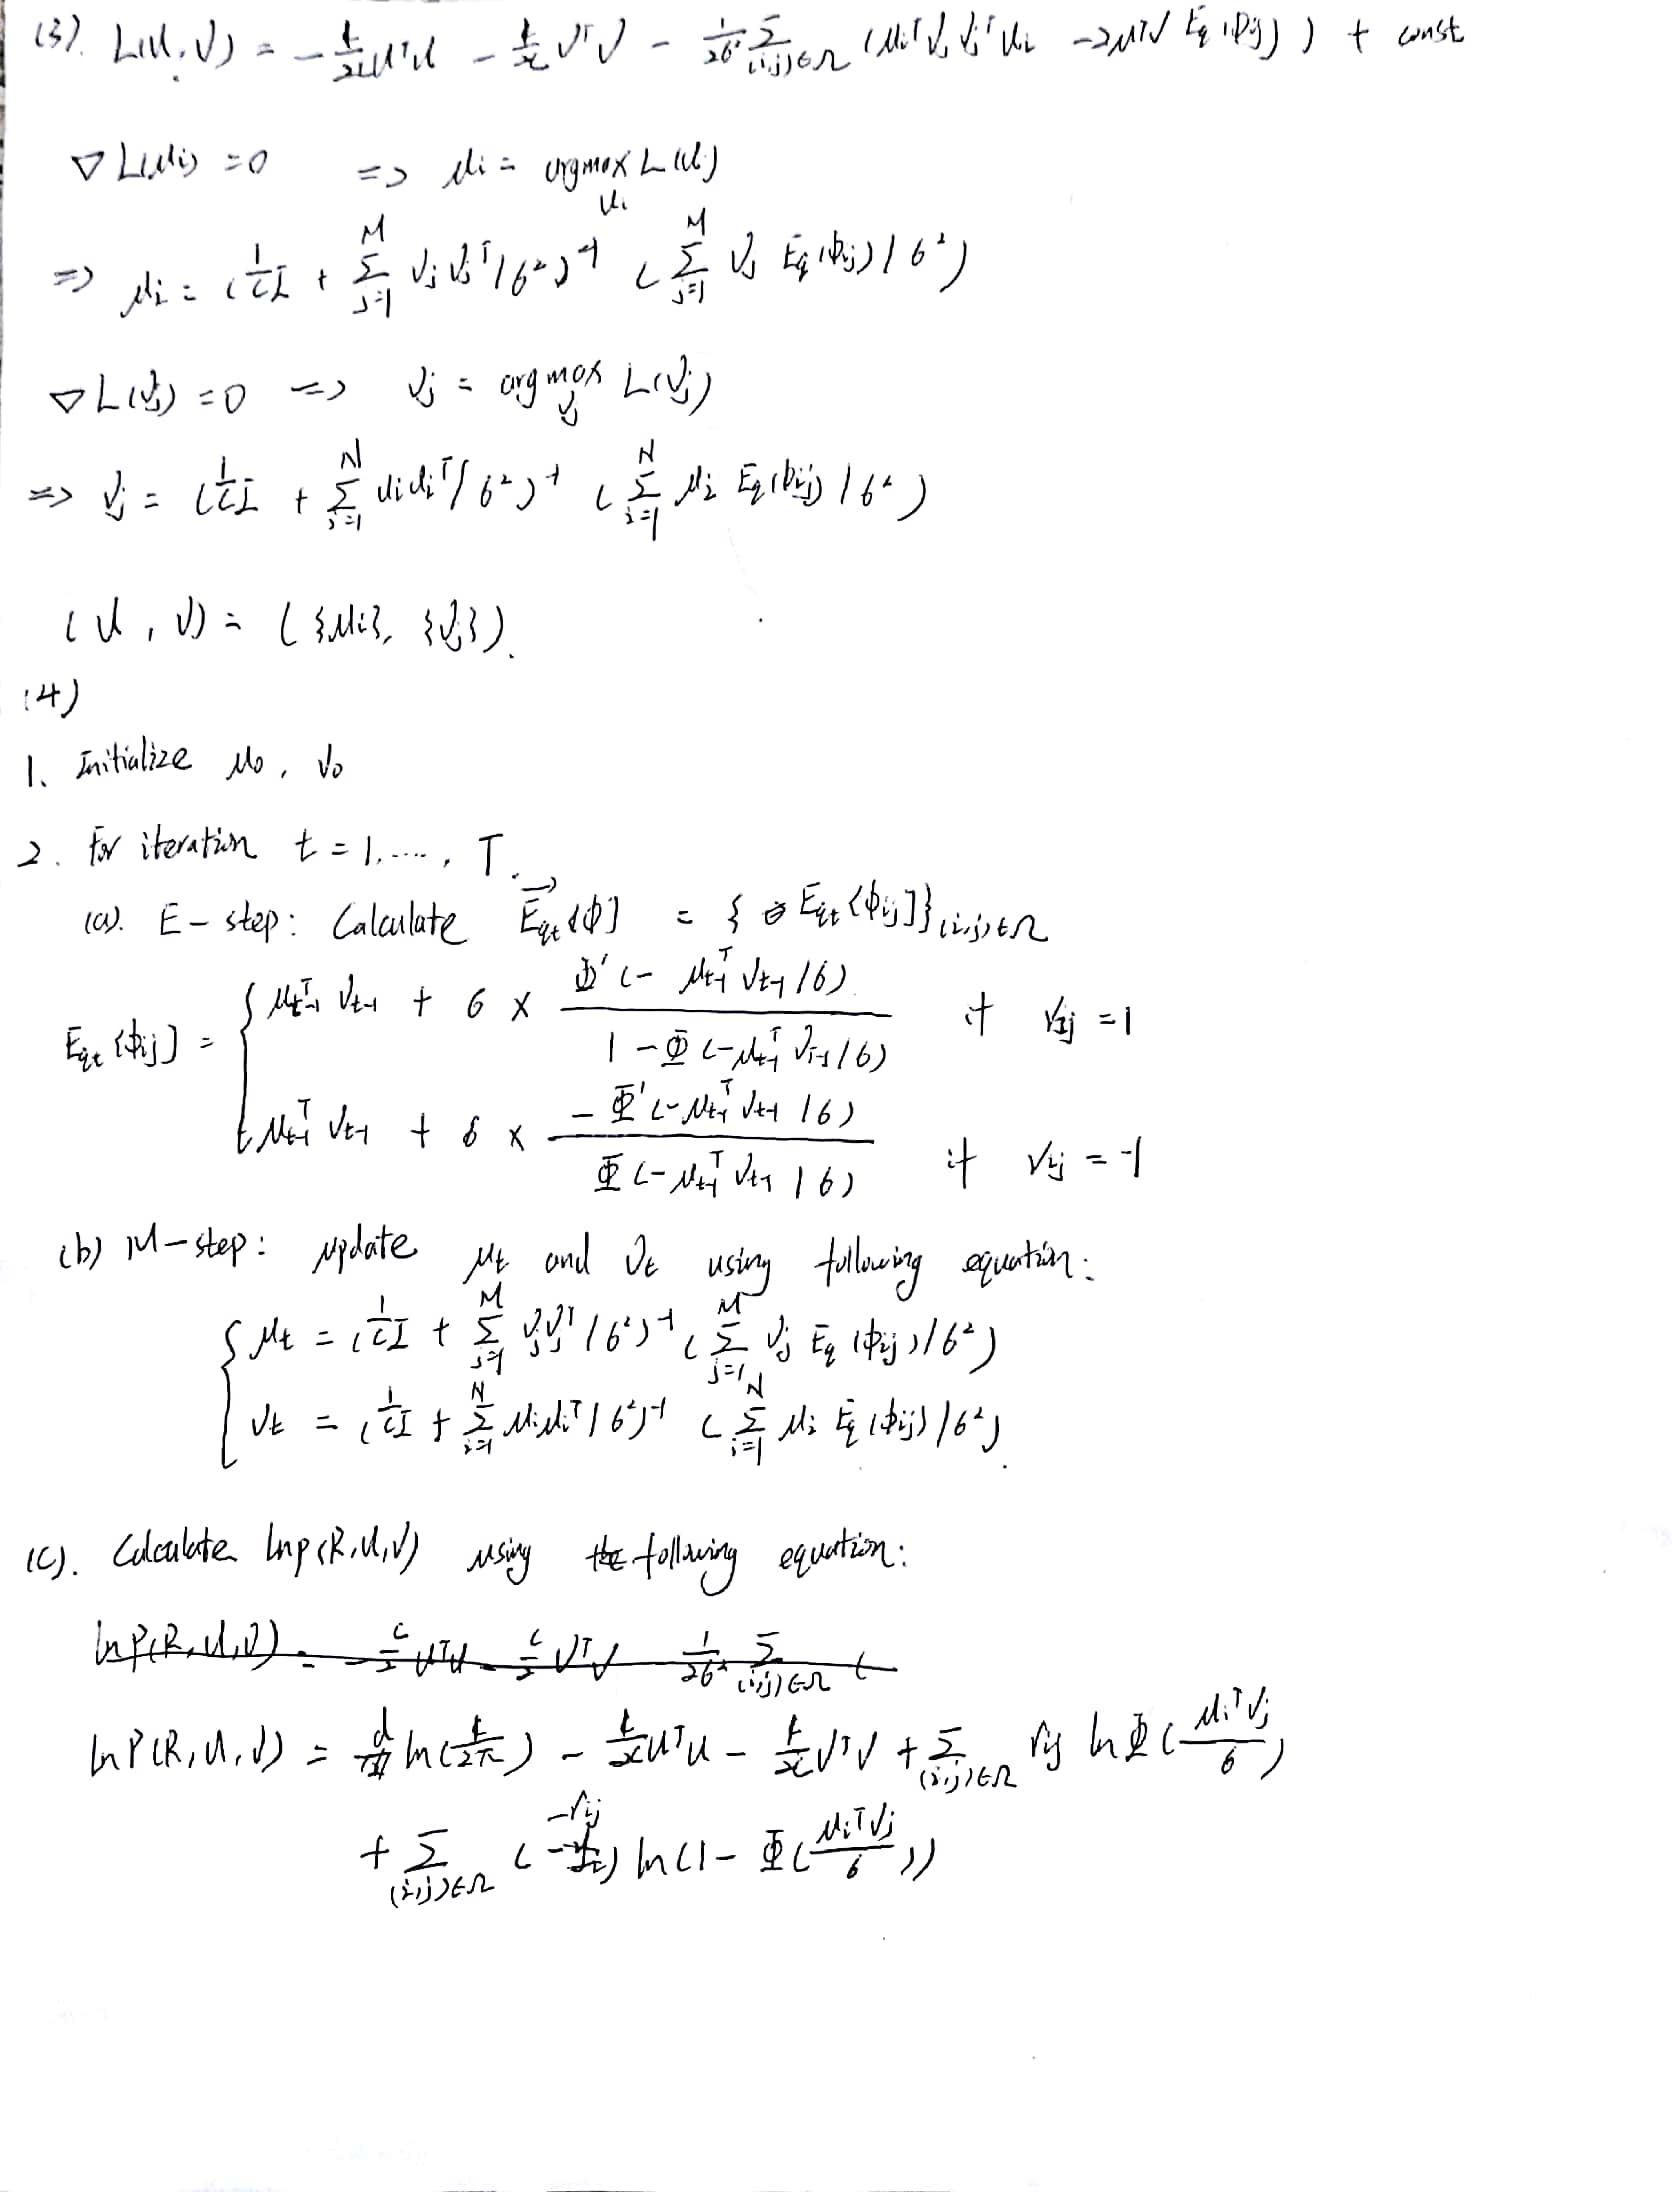 (3). L(U, V) = -1/2c UᵀU - 1/2c VᵀV - 1/2σ² Σ_{(i,j)∈Ω} (uᵢᵀ Vⱼ Vⱼᵀ uᵢ - 2uᵀV E_q(φᵢⱼ)) + const
∇L(uᵢ) = 0 => uᵢ = argmax_{uᵢ} L(uᵢ)
=> uᵢ = (1/c I + Σ_{j=1}^{M} Vⱼ Vⱼᵀ/σ²)⁻¹ (Σ_{j=1}^{M} Vⱼ E_q(φᵢⱼ)/σ²)
∇L(Vⱼ) = 0 => Vⱼ = argmax_{Vⱼ} L(Vⱼ)
=> Vⱼ = (1/c I + Σ_{i=1}^{N} uᵢuᵢᵀ/σ²)⁻¹ (Σ_{i=1}^{N} uᵢ E_q(φᵢⱼ)/σ²)
(U, V) = ({uᵢ}, {Vⱼ}).
(4)
1. Initialize u₀, v₀
2. For iteration t = 1, ....., T.
(a). E-step: Calculate E_{qt}[φ] = {E_{qt}[φᵢⱼ]}_{(i,j)∈Ω}
E_{qt}[φᵢⱼ] = { u_{t-1}ᵀ V_{t-1} + σ × Φ'(-u_{t-1}ᵀ V_{t-1}/σ) / (1 - Φ(-u_{t-1}ᵀ V_{t-1}/σ)) if rᵢⱼ = 1
u_{t-1}ᵀ V_{t-1} + σ × -Φ'(-u_{t-1}ᵀ V_{t-1}/σ) / Φ(-u_{t-1}ᵀ V_{t-1}/σ) if rᵢⱼ = -1
(b) M-step: update u_t and v_t using following equation:
{ u_t = (1/c I + Σ_{j=1}^{M} VⱼVⱼᵀ/σ²)⁻¹ (Σ_{j=1}^{M} Vⱼ E_q(φᵢⱼ)/σ²)
V_t = (1/c I + Σ_{i=1}^{N} uᵢuᵢᵀ/σ²)⁻¹ (Σ_{i=1}^{N} uᵢ E_q(φᵢⱼ)/σ²).
(c). Calculate lnp(R,U,V) using the following equation:
lnP(R,U,V) = -c/2 UᵀU - c/2 VᵀV 1/2σ² Σ_{(i,j)∈Ω} (
lnP(R,U,V) = ln( /2π) - UᵀU - VᵀV + Σ_{(i,j)∈Ω} rᵢⱼ lnΦ(uᵢᵀVⱼ/σ)
+ Σ_{(i,j)∈Ω} (-rᵢⱼ) ln(1 - Φ(uᵢᵀVⱼ/σ))